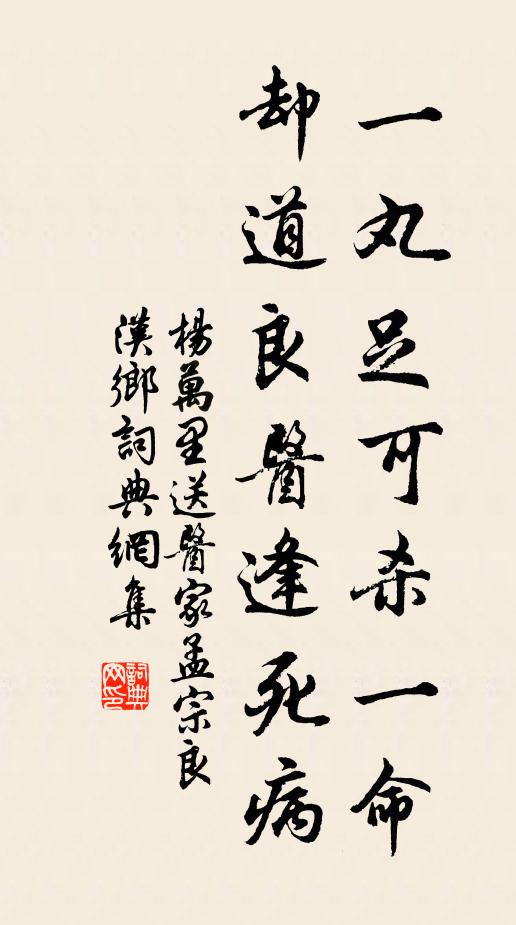 一丸足可杀一命
却道良醫逢死病
楊萬里送醫家孟宗良
漢鄉詞典網集
詞典网印